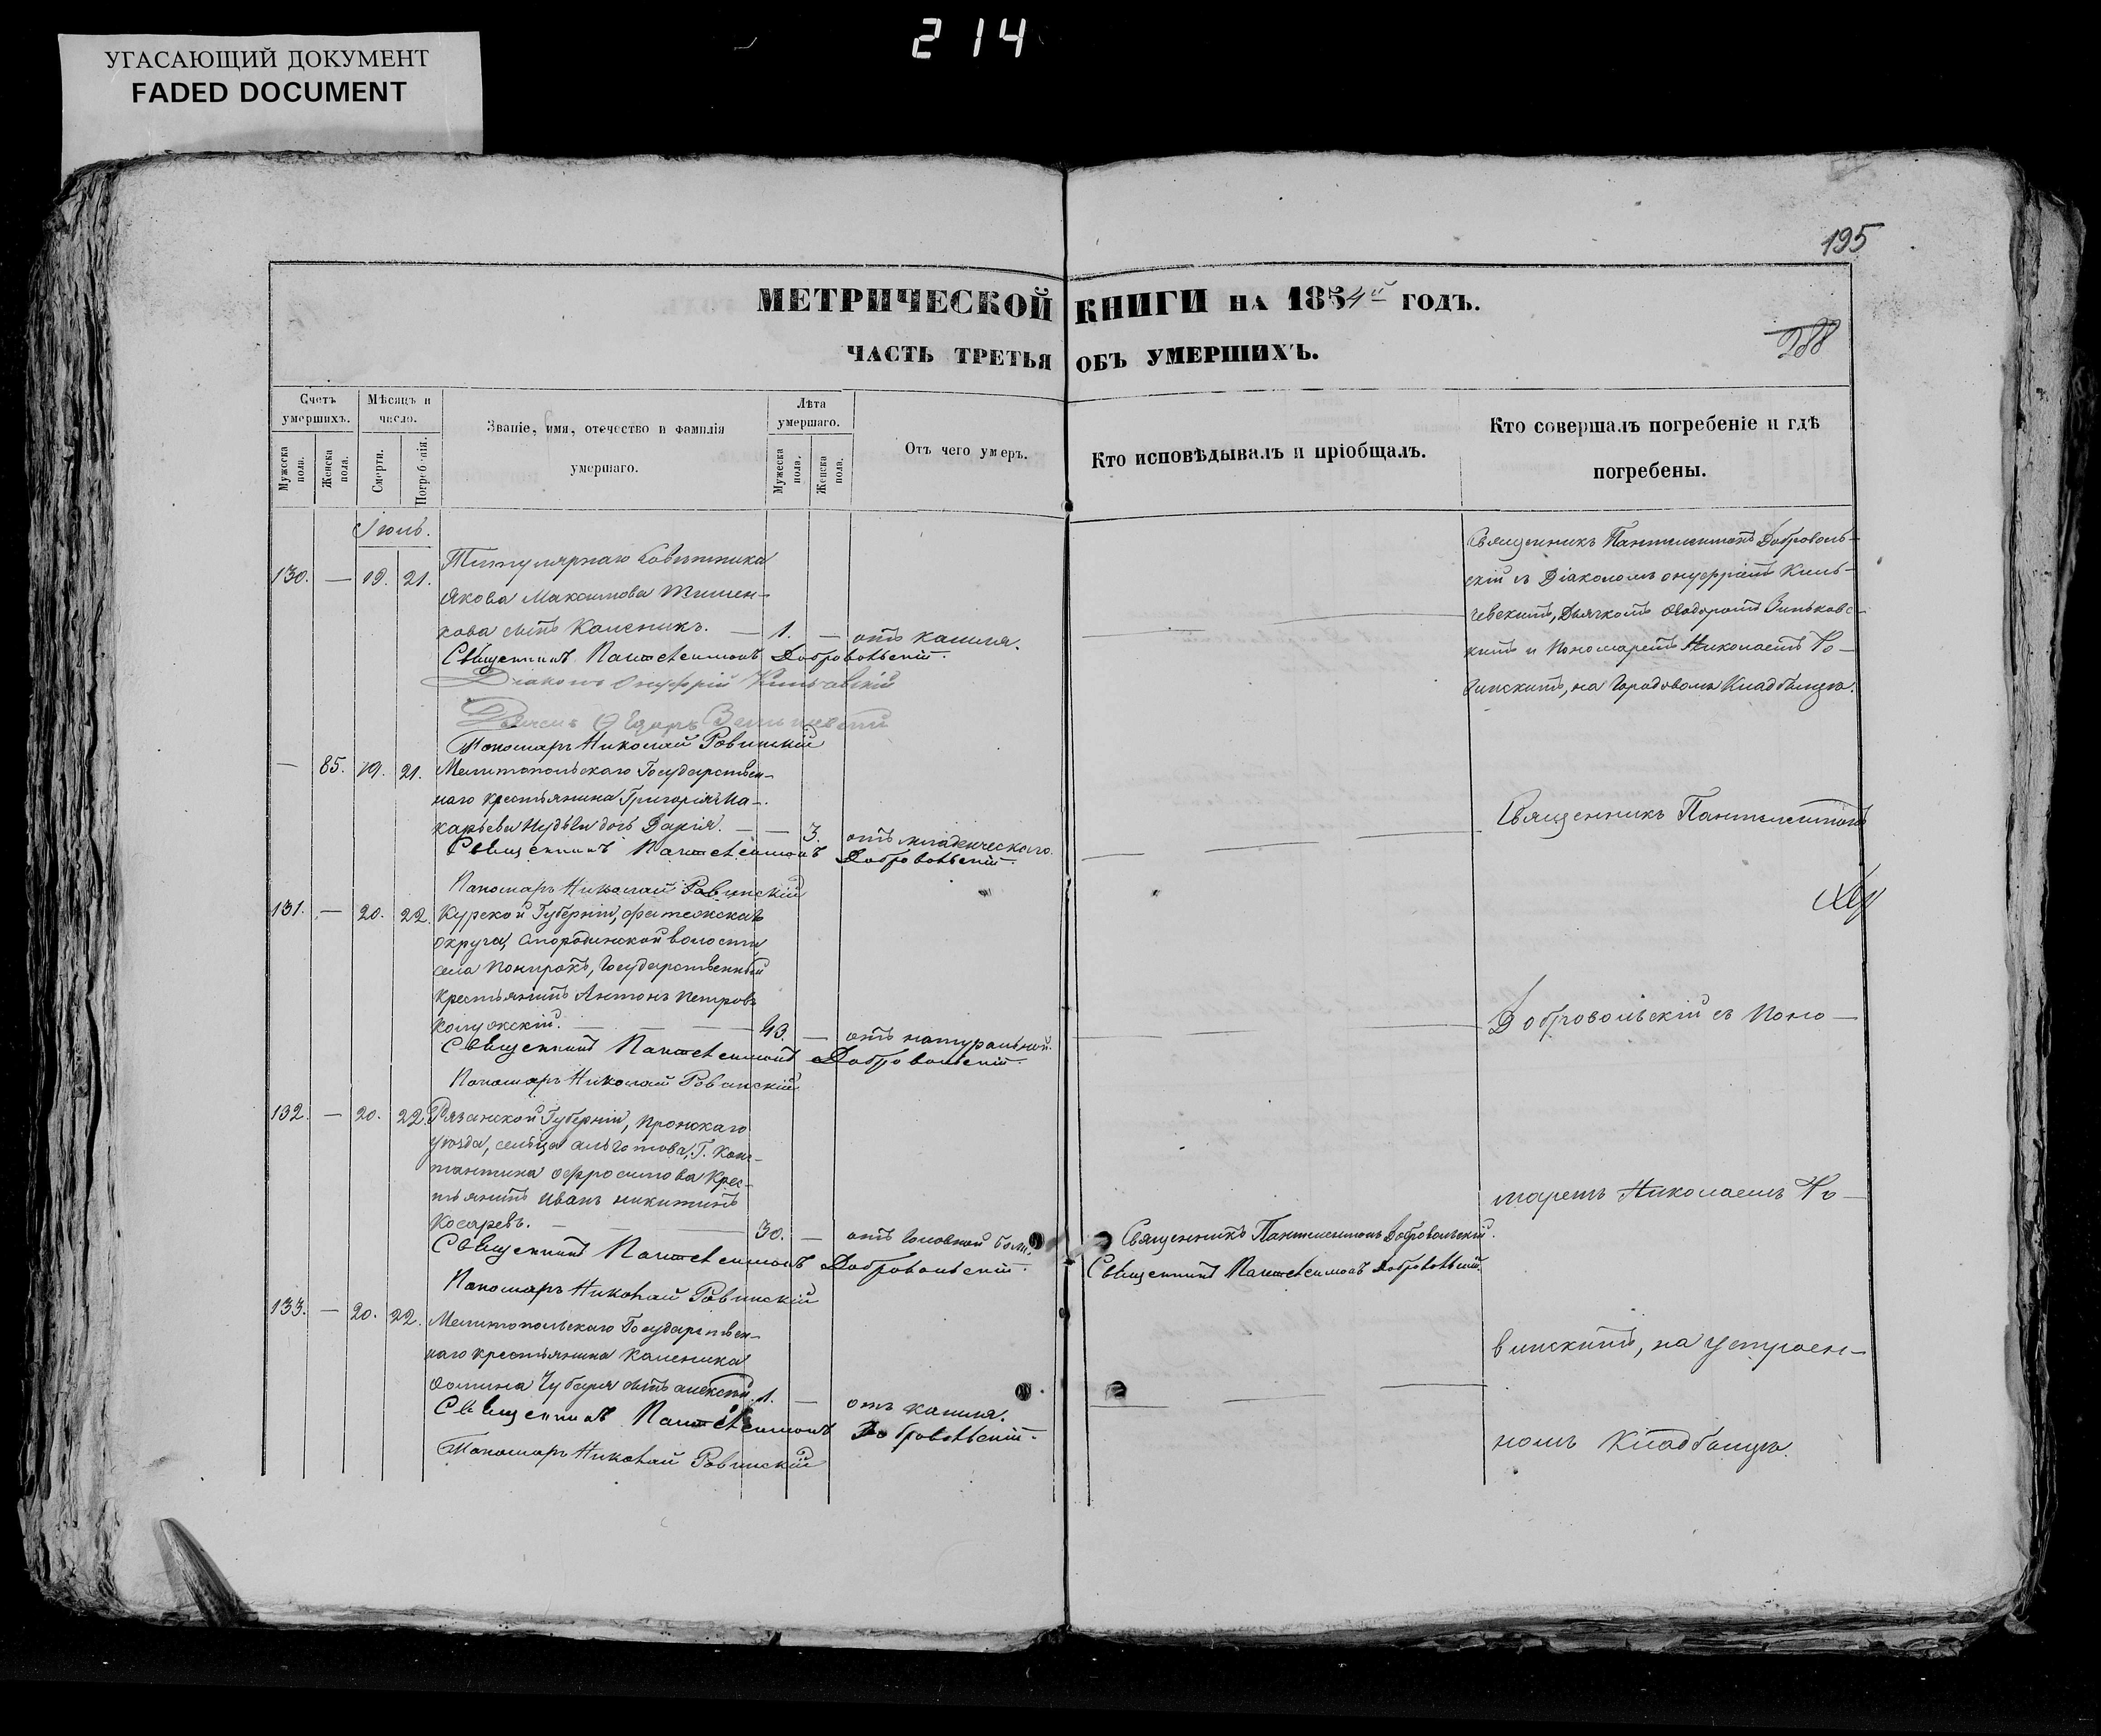 214
УГАСАЮЩИЙ ДОКУМЕНТ
FADED DOCUMENT
195
МЕТРИЧЕСКОЙ КНИГИ НА 1854й ГОДЪ.
288
ЧАСТЬ ТРЕТЬЯ ОБЪ УМЕРШИХЪ.
Счетъ умершихъ.
Мужеска пола.
Женска пола.
Мѣсяцъ и число.
Смерти.
Погребенія.
Званіе, имя, отечество и фамилія
умершаго.
Лѣта умершаго.
Мужеска пола.
Женска пола.
Отъ чего умеръ.
Кто исповѣдывалъ и пріобщалъ.
Кто совершалъ погребеніе и гдѣ
погребены.
Іюль.
130. — 19. 21. Титулярнаго Совѣтника
Якова Максимова Тимен-
кова сынъ Каленикъ. — 1. — отъ кашля.
Священникъ Пантелеимонъ Добровольскій.
Діаконъ Онуфрій Кильчевскій
Пономарь Николай Ровинскій
Священникъ Пантелеимонъ Доброволь-
скій съ Діакономъ Онуфріемъ Киль-
чевскимъ, Дьячкомъ Ѳеодоромъ Виньковс-
кимъ и Пономаремъ Николаемъ Ро-
винскимъ, на Городовомъ Кладбищѣ.
— 85. 19. 21. Мелитопольскаго Государствен-
наго крестьянина Григорія Ма-
карьева дочь Дарія. — — 3. отъ младенческаго.
Священникъ Пантелеимонъ Добровольскій.
Пономарь Николай Ровинскій
131. — 20. 22. Курской Губерніи, Фатежскаго
округа, Смородинской волости
села Понырокъ, Государственный
крестьянинъ Антонъ Петровъ
Калужскій. — 43. — отъ натуральной.
Священникъ Пантелеимонъ Добровольскій.
Пономарь Николай Ровинскій
132. — 20. 22. Рязанской Губерніи, Пронскаго
уѣзда, сельца Г. Конс-
тантина Офросимова крес-
тьянинъ Иванъ Никитинъ
Косаревъ. — 30. — отъ головной боли.
Священникъ Пантелеимонъ Добровольскій.
Пономарь Николай Ровинскій
Священникъ Пантелеимонъ Добровольскій.
Священникъ Пантелеимонъ Добровольскій.
133. — 20. 22. Мелитопольскаго Государствен-
наго крестьянина Каленика
Фомина Чубаря сынъ Алексѣй. 1. — отъ кашля.
Священникъ Пантелеимонъ Добровольскій.
Пономарь Николай Ровинскій
Священникъ Пантелеимонъ
Добровольскій съ Поно-
маремъ Николаемъ Ро-
винскимъ, на устроен-
номъ Кладбищѣ.